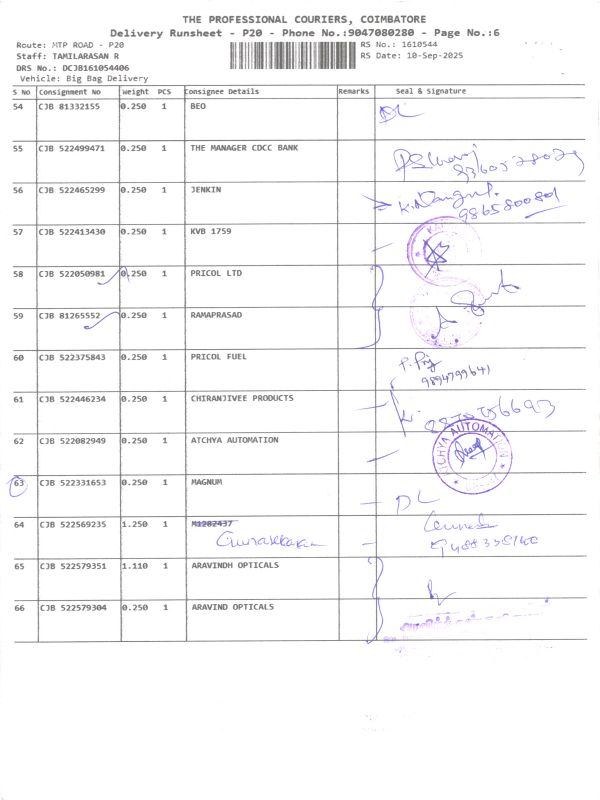 THE PROFESSIONAL COURIERS, COIMBATORE
Delivery Runsheet - P20 - Phone No.:9047080280 - Page No.:6
Route: MTP ROAD - P20
RS No.: 1610544
Staff: TAMILARASAN R
RS Date: 10-Sep-2025
DRS No.: DCJB161054406
Vehicle: Big Bag Delivery
S No Consignment No Weight PCS Consignee Details Remarks Seal & Signature
54 CJB 81332155 0.250 1 BEO DL
55 CJB 522499471 0.250 1 THE MANAGER CDCC BANK
56 CJB 522465299 0.250 1 JENKIN
9865800801
57 CJB 522413430 0.250 1 KVB 1759
58 CJB 522050981 0.250 1 PRICOL LTD
59 CJB 81265552 0.250 1 RAMAPRASAD
60 CJB 522375843 0.250 1 PRICOL FUEL
9894799641
61 CJB 522446234 0.250 1 CHIRANJIVEE PRODUCTS
62 CJB 522082949 0.250 1 ATCHYA AUTOMATION ATCHYA AUTOMATION
63 CJB 522331653 0.250 1 MAGNUM DL
64 CJB 522569235 1.250 1 M1282437
65 CJB 522579351 1.110 1 ARAVINDH OPTICALS
66 CJB 522579304 0.250 1 ARAVIND OPTICALS